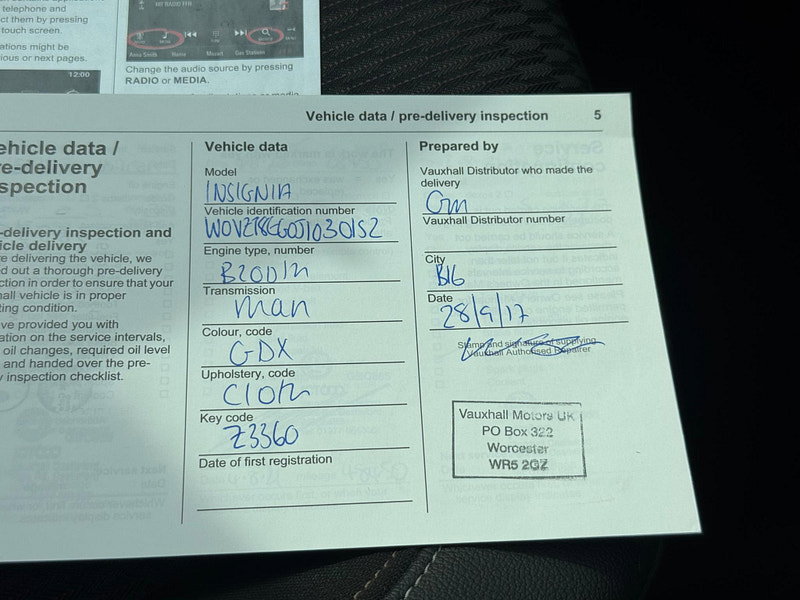 telephone and
ct them by pressing
touch screen.
ations might be
ious or next pages.
12:00
HIT RADIO FFH
Anna Smith Home Mozart Gas Stations
Change the audio source by pressing
RADIO or MEDIA.
Vehicle data / pre-delivery inspection 5
ehicle data /
re-delivery
spection
-delivery inspection and
icle delivery
re delivering the vehicle, we
d out a thorough pre-delivery
ction in order to ensure that your
hall vehicle is in proper
ting condition.
ve provided you with
ation on the service intervals,
oil changes, required oil level
and handed over the pre-
y inspection checklist.
Vehicle data
Model
INSIGNIA
Vehicle identification number
Engine type, number
Transmission
Man
Colour, code
GDX
Upholstery, code
Cloth
Key code
Z3360
Date of first registration
Prepared by
Vauxhall Distributor who made the
delivery
Gm
Vauxhall Distributor number
City
B16
Date
28/9/17
Stamp and signature of supplying
Vauxhall Authorised Repairer
Vauxhall Motors UK
PO Box 322
Worcester
WR5 2GZ